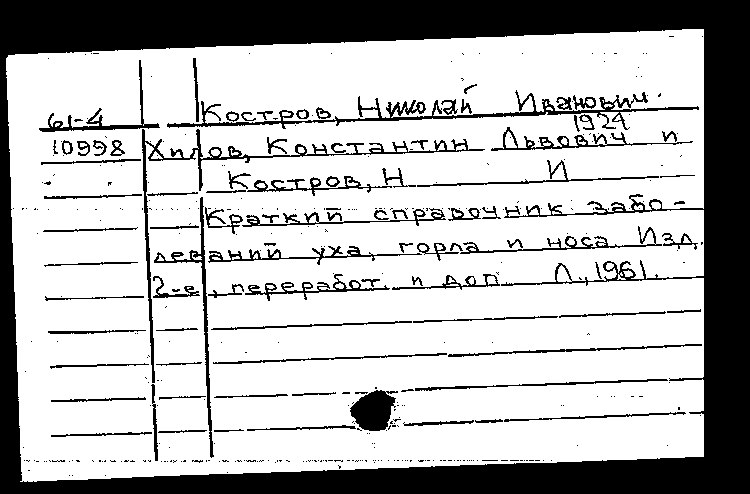 61-4 Костров, Николай Иванович.
1924
10998 Хилов, Константин Львович и
Костров, Н И
Краткий справочник забо-
леваний уха, горла и носа. Изд.
2-е, переработ. и доп. Л., 1961.